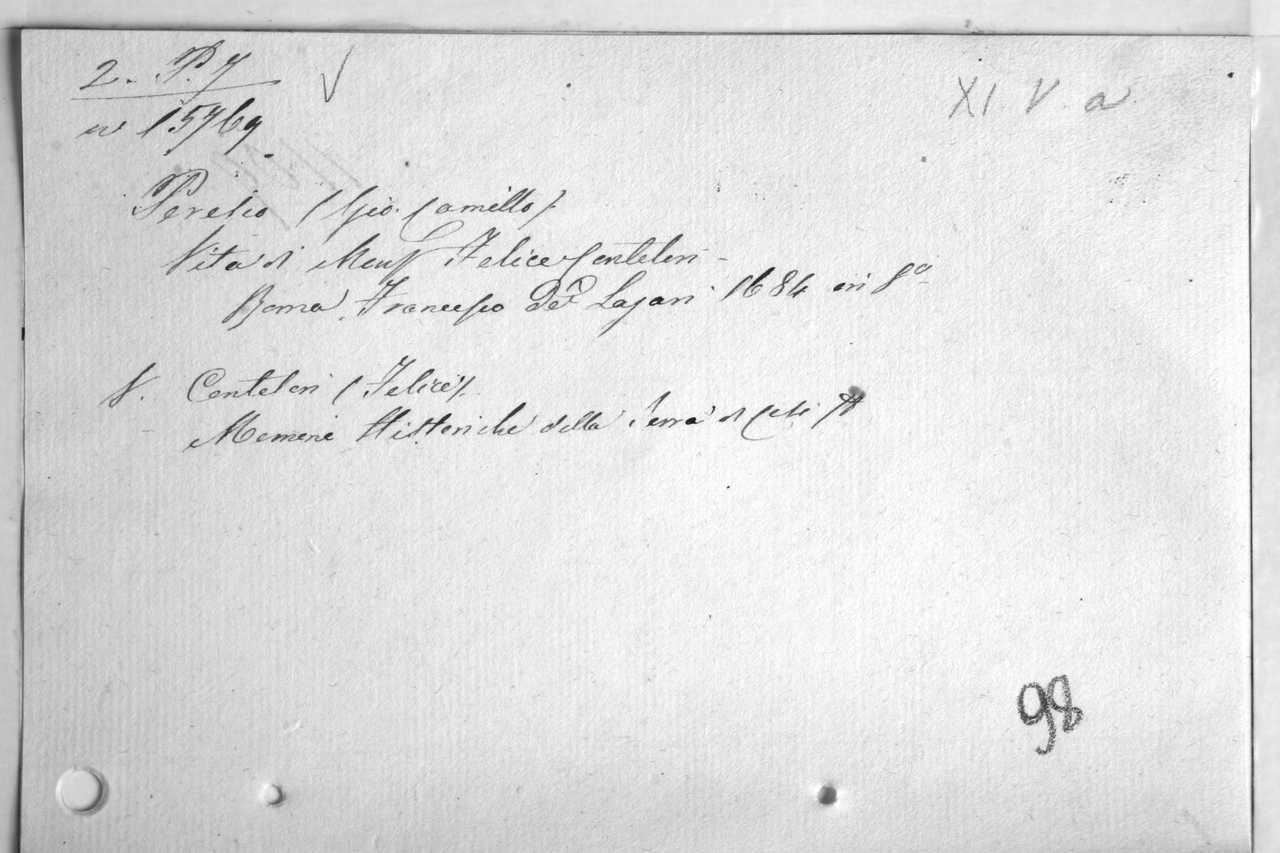 2. P. 7
n 15769
XI V a
Peresio (Gio. Camillo)
Vita di Mons Felice Conteleri
Roma Francesco de Lazari 1684 in 8°
V. Conteleri (Felice)
Memorie Historiche della Terra di Cesi
98